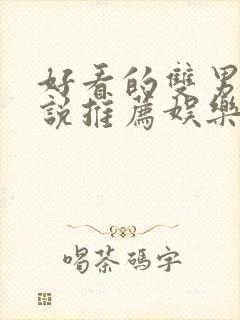 好看的雙男
說推薦娛樂
喝茶碼字